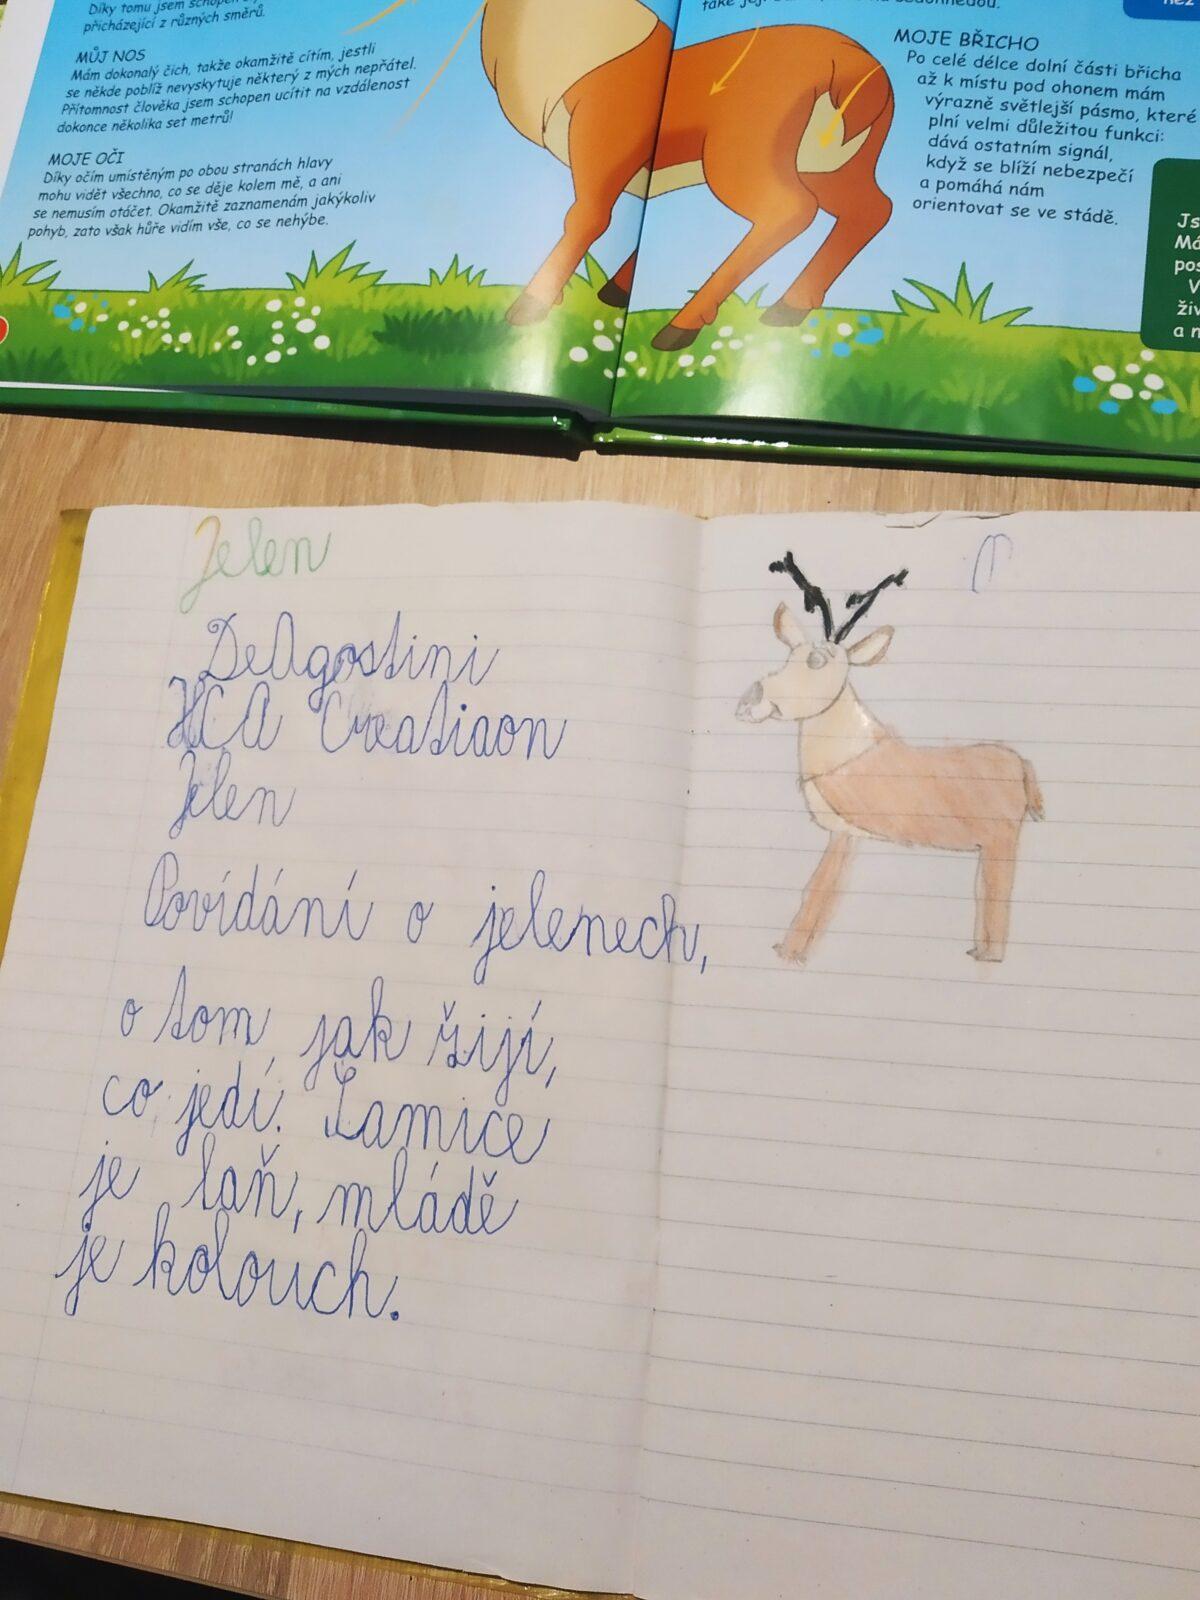 Díky tomu jsem schopen
přicházející z různých směrů.
MŮJ NOS
Mám dokonalý čich, takže okamžitě cítím, jestli
se někde poblíž nevyskytuje některý z mých nepřátel.
Přítomnost člověka jsem schopen ucítit na vzdálenost
dokonce několika set metrů!
MOJE OČI
Díky očím umístěným po obou stranách hlavy
mohu vidět všechno, co se děje kolem mě, a ani
se nemusím otáčet. Okamžitě zaznamenám jakýkoliv
pohyb, zato však hůře vidím vše, co se nehýbe.
také její
MOJE BŘICHO
Po celé délce dolní části břicha
až k místu pod ohonem mám
výrazně světlejší pásmo, které
plní velmi důležitou funkci:
dává ostatním signál,
když se blíží nebezpečí
a pomáhá nám
orientovat se ve stádě.
než
Js
Má
pos
V
živ
a n
Jelen
DeAgostini
HCA Creatiaon
Jelen
Povídání o jelenech,
o tom, jak žijí,
co jedí. Samice
je laň, mládě
je kolouch.